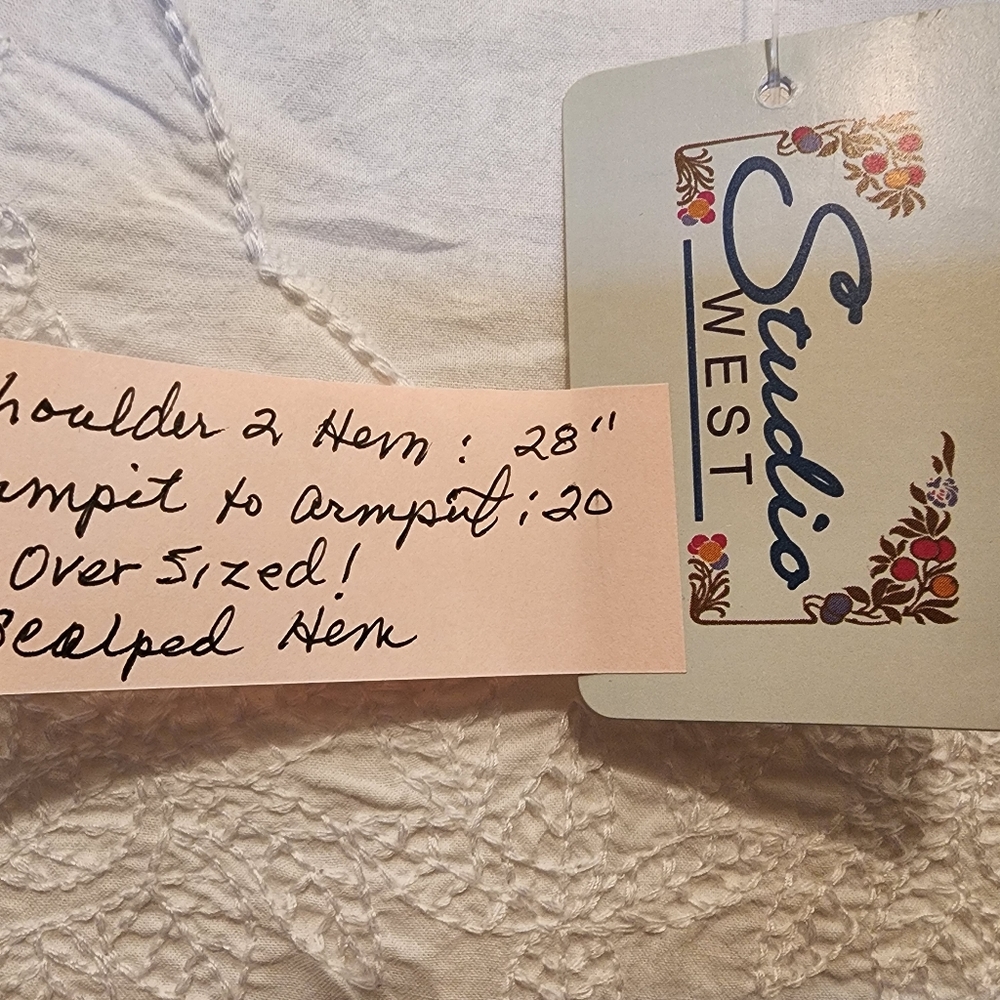 houlder 2 Hem : 28"
mpit to armpit : 20
Over Sized!
Scalped Hem
Studio
WEST